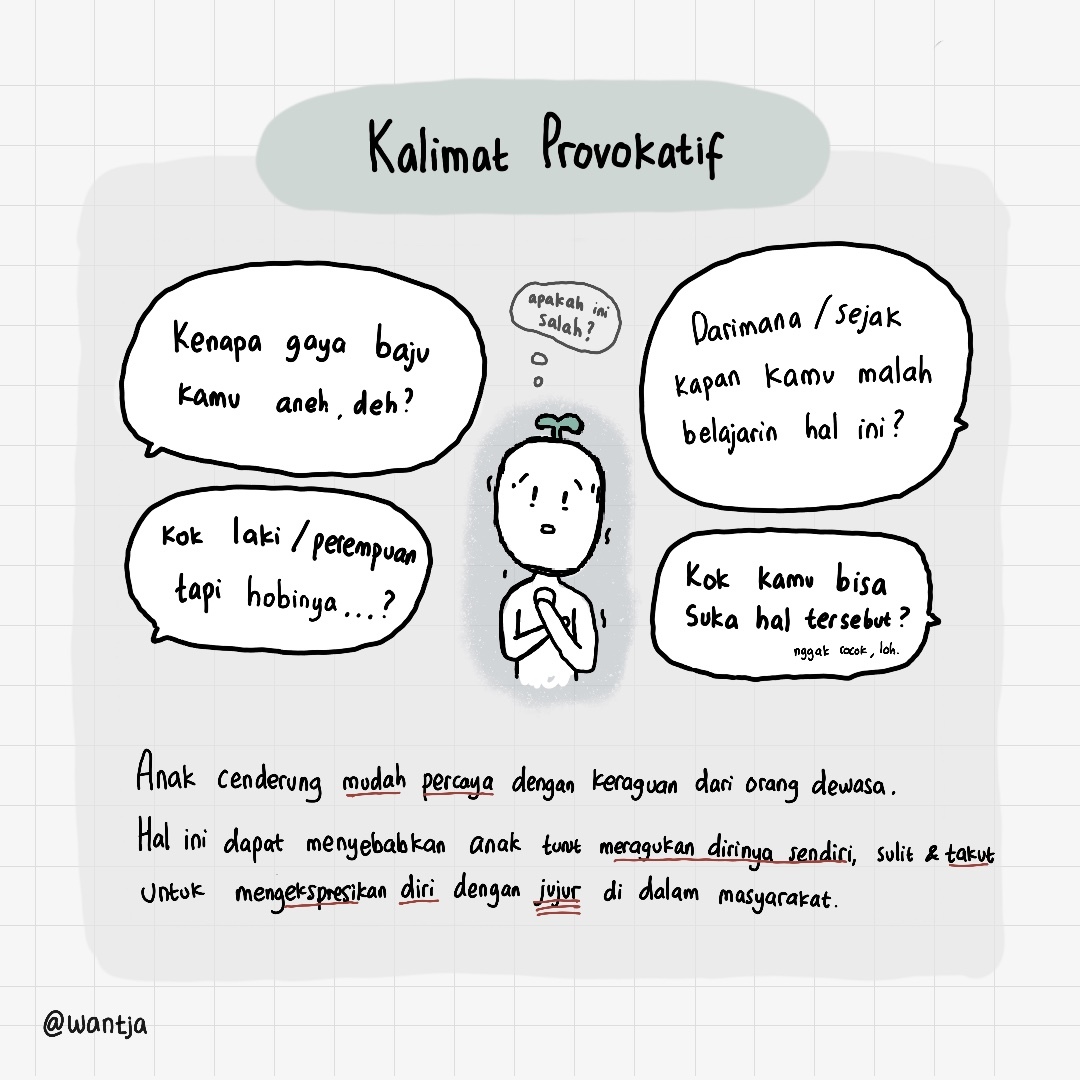 Kalimat Provokatif
Kenapa gaya baju
kamu aneh, deh?
apakah ini
salah?
Darimana / sejak
kapan kamu malah
belajarin hal ini?
Kok laki / perempuan
tapi hobinya...?
Kok kamu bisa
suka hal tersebut?
nggak cocok, loh.
Anak cenderung mudah percaya dengan keraguan dari orang dewasa.
Hal ini dapat menyebabkan anak turut meragukan dirinya sendiri, sulit & takut
untuk mengekspresikan diri dengan jujur di dalam masyarakat.
@wantja